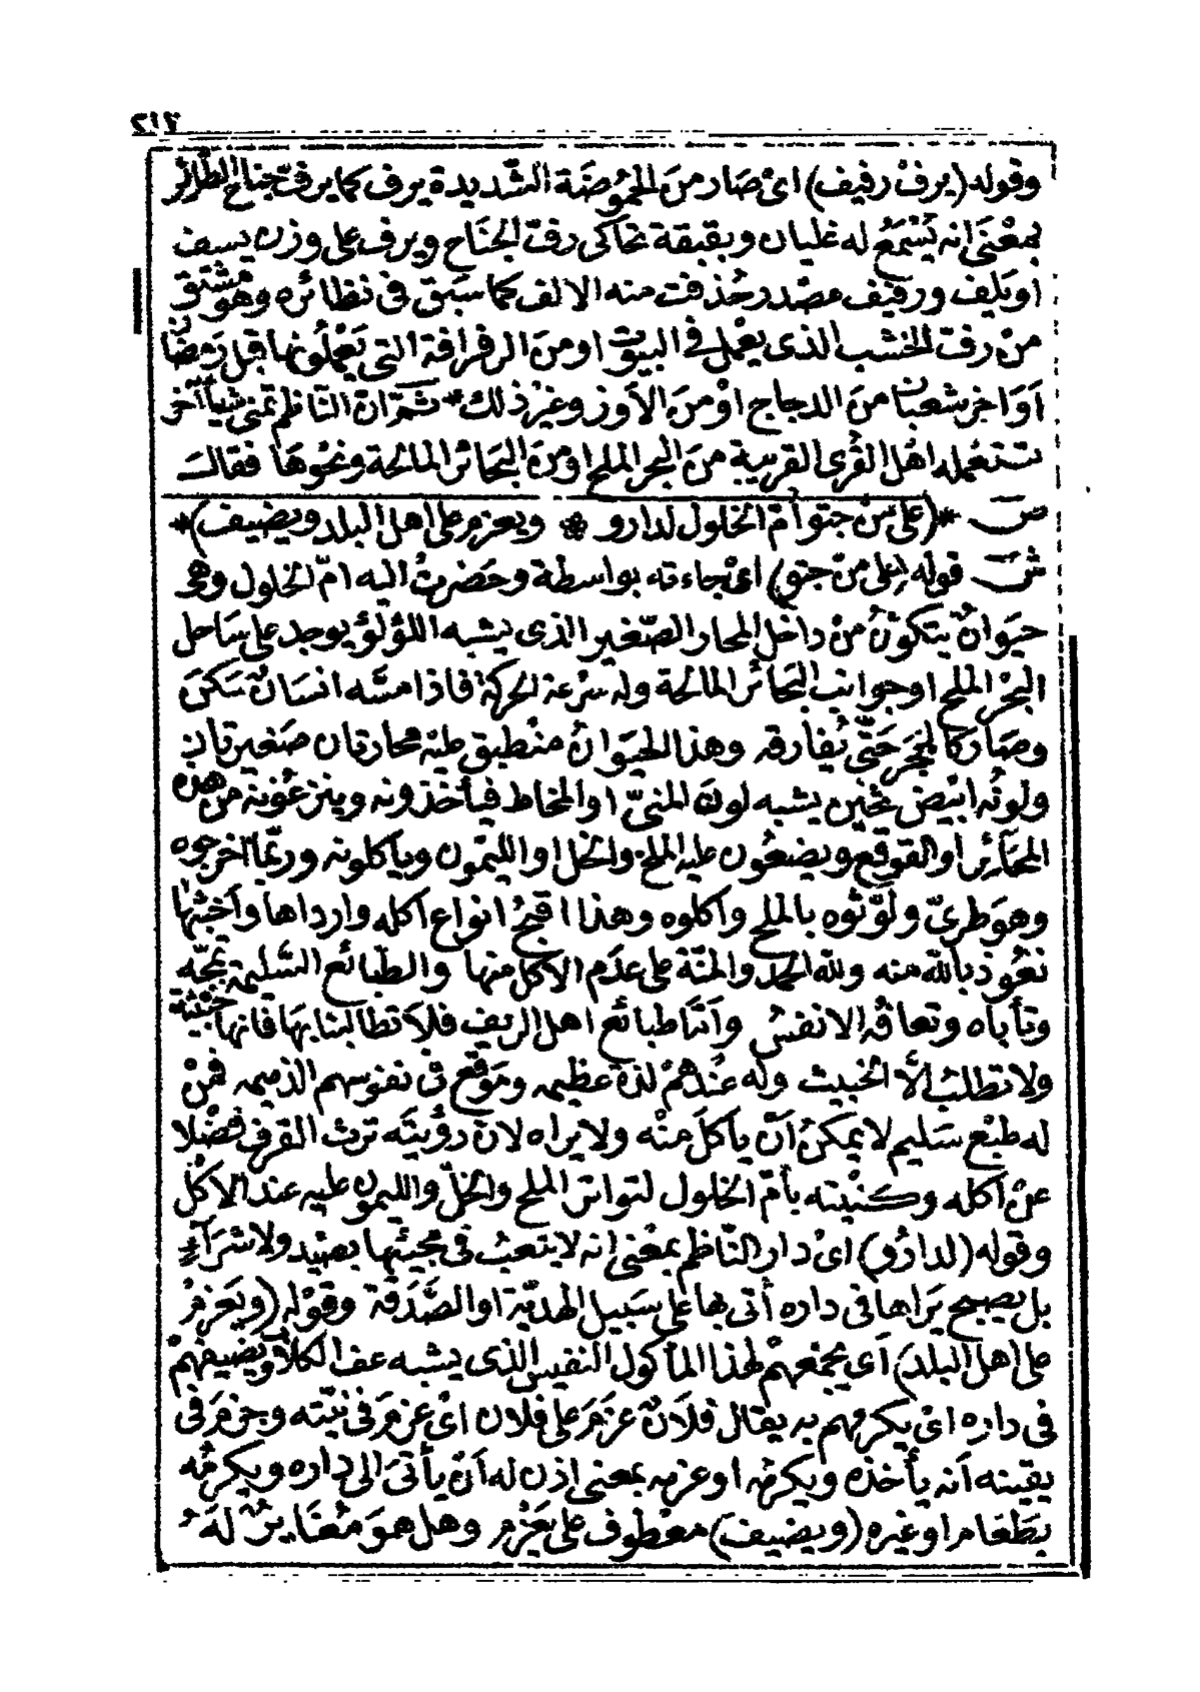 ٢١٢
وقوله (يرف رفيف) اى صار من الحموضة الشديدة يرف كما يرف جناح الطائر
بمعنى انه يسمع له غليان وبقبقة تحاكى رف الجناح ويرف على وزن يسف
او يلف ورفيف مصدر حذفت منه الالف كما سبق فى نظائره وهو مشتق
من رف الخشب الذى يعمل فى البيوت او من الرفرافة التى يعملونها قبل رمضان
اواخر شعبان من الدجاج او من الاوز وغير ذلك * ثم ان الناظم تمنى شيأ آخر
تستعمله اهل القرى القريبة من البحر الملح او من البحائر المالحة ونحوها فقال
ص * (على من جتو أم الخلول لدارو * ويعزم على اهل البلد ويضيف) *
ش قوله (على من جتو) اى جاءته بواسطة وحضرت اليه ام الخلول وهى
حيوان يتكون من داخل المحار الصغير الذى يشبه اللؤلؤ يوجد على ساحل
البحر الملح او جوانب البحائر المالحة وله سرعة الحركة فاذا مسه انسان سكن
وصار كالحجر حتى يفارقه وهذا الحيوان منطبق عليه محارتان صغيرتان
ولونه ابيض ثخين يشبه لون المنى او المخاط فيأخذونه وينزعونه من هذه
المحائر او القوقع ويضعون عليه الملح والخل او الليمون ويأكلونه وربما اخرجوه
وهو طرى ولوثوه بالملح وأكلوه وهذا اقبح انواع أكله وارداها وأخبثها
نعوذ بالله منه ولله الحمد والمنة على عدم الاكل منها والطبائع السليمة تمجه
وتأباه وتعافه الانفس وأتنا طبائع اهل الريف فلا تطالبنا بها فانها خبيثة
ولا تطلب الا الخبيث وله عندهم لذة عظيمه وموقع فى نفوسهم الذميمه فمن
له طبع سليم لا يمكن أن يأكل منه ولا يراه لان رؤيته ترث القرف فضلا
عن أكله وكنيته بأم الخلول لتواتر الملح والخل والليمون عليه عند الاكل
وقوله (لدارو) اى دار الناظم بمعنى انه لا يتعب فى مجيئها بصيد ولا شرآء
بل يصبح يراها فى داره أتى بها على سبيل الهدية او الصدقة وقوله (ويعزم
على اهل البلد) أى يجمعهم لهذا المأكول النفيس الذى يشبه عف الكلاب ويضيفهم
فى داره اى يكرمهم به يقال فلان عزم على فلان اى عزم فى نيته وجزم فى
يقينه أنه يأخذه ويكرمه او عزمه بمعنى اذن له أن يأتى الى داره ويكرمه
بطعام او غيره (ويضيف) معطوف على يعزم وهل هو مغاير له